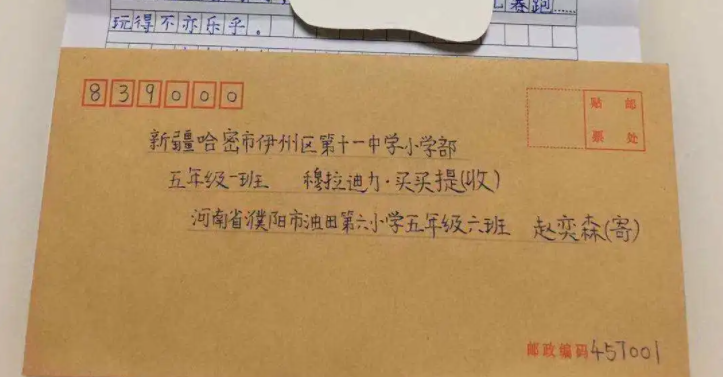 春跑……
玩得不亦乐乎。
839000
贴邮
票处
新疆哈密市伊州区第十一中学小学部
五年级一班 穆拉迪力·买买提(收)
河南省濮阳市油田第六小学五年级六班 赵奕森(寄)
邮政编码457001